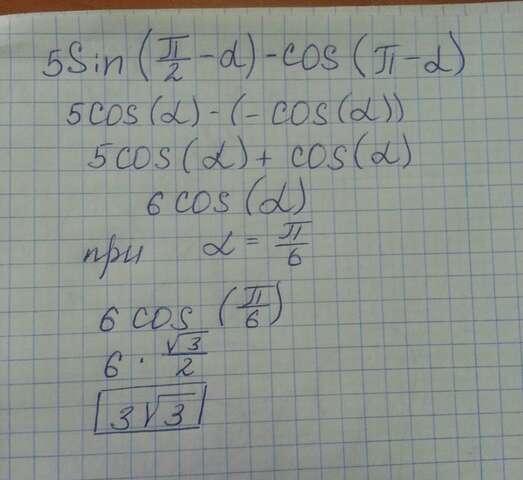 5Sin(π/2-α)-cos(π-α)
5cos(α)-(-cos(α))
5cos(α)+cos(α)
6cos(α)
при α=π/6
6cos(π/6)
6·√3/2
3√3